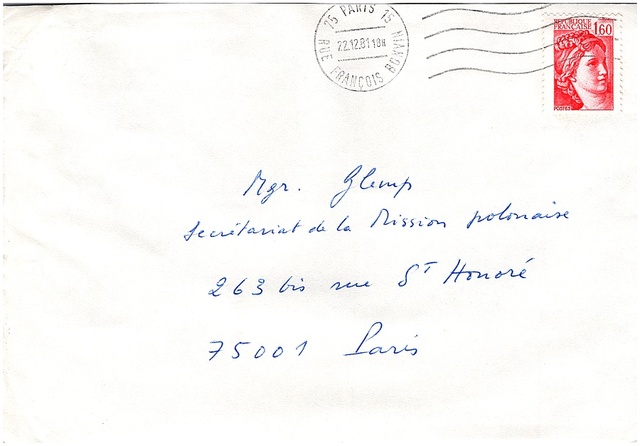 75 PARIS 15
22.12.81 18H
RUE FRANÇOIS BONVIN
REPUBLIQUE
FRANÇAISE 1,60
Mgr. Glemp
Secrétariat de la Mission polonaise
263 bis rue St Honoré
75001 Paris